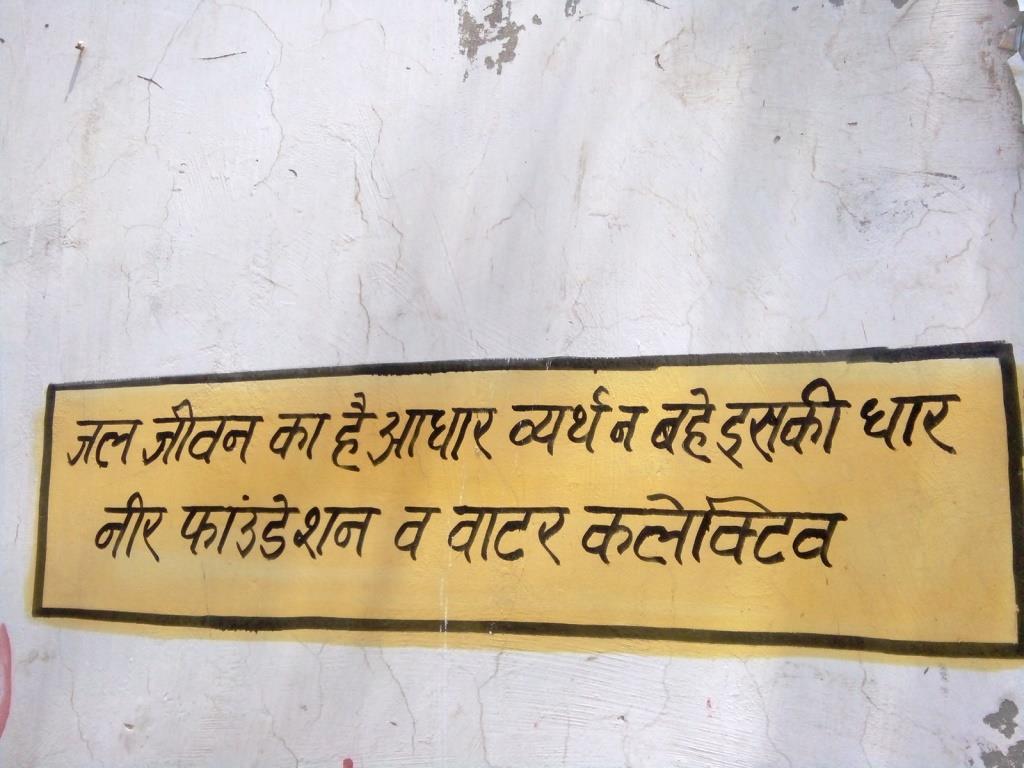 जल जीवन का है आधार व्यर्थ न बहे इसकी धार
नीर फाउंडेशन व वाटर कलेक्टिव